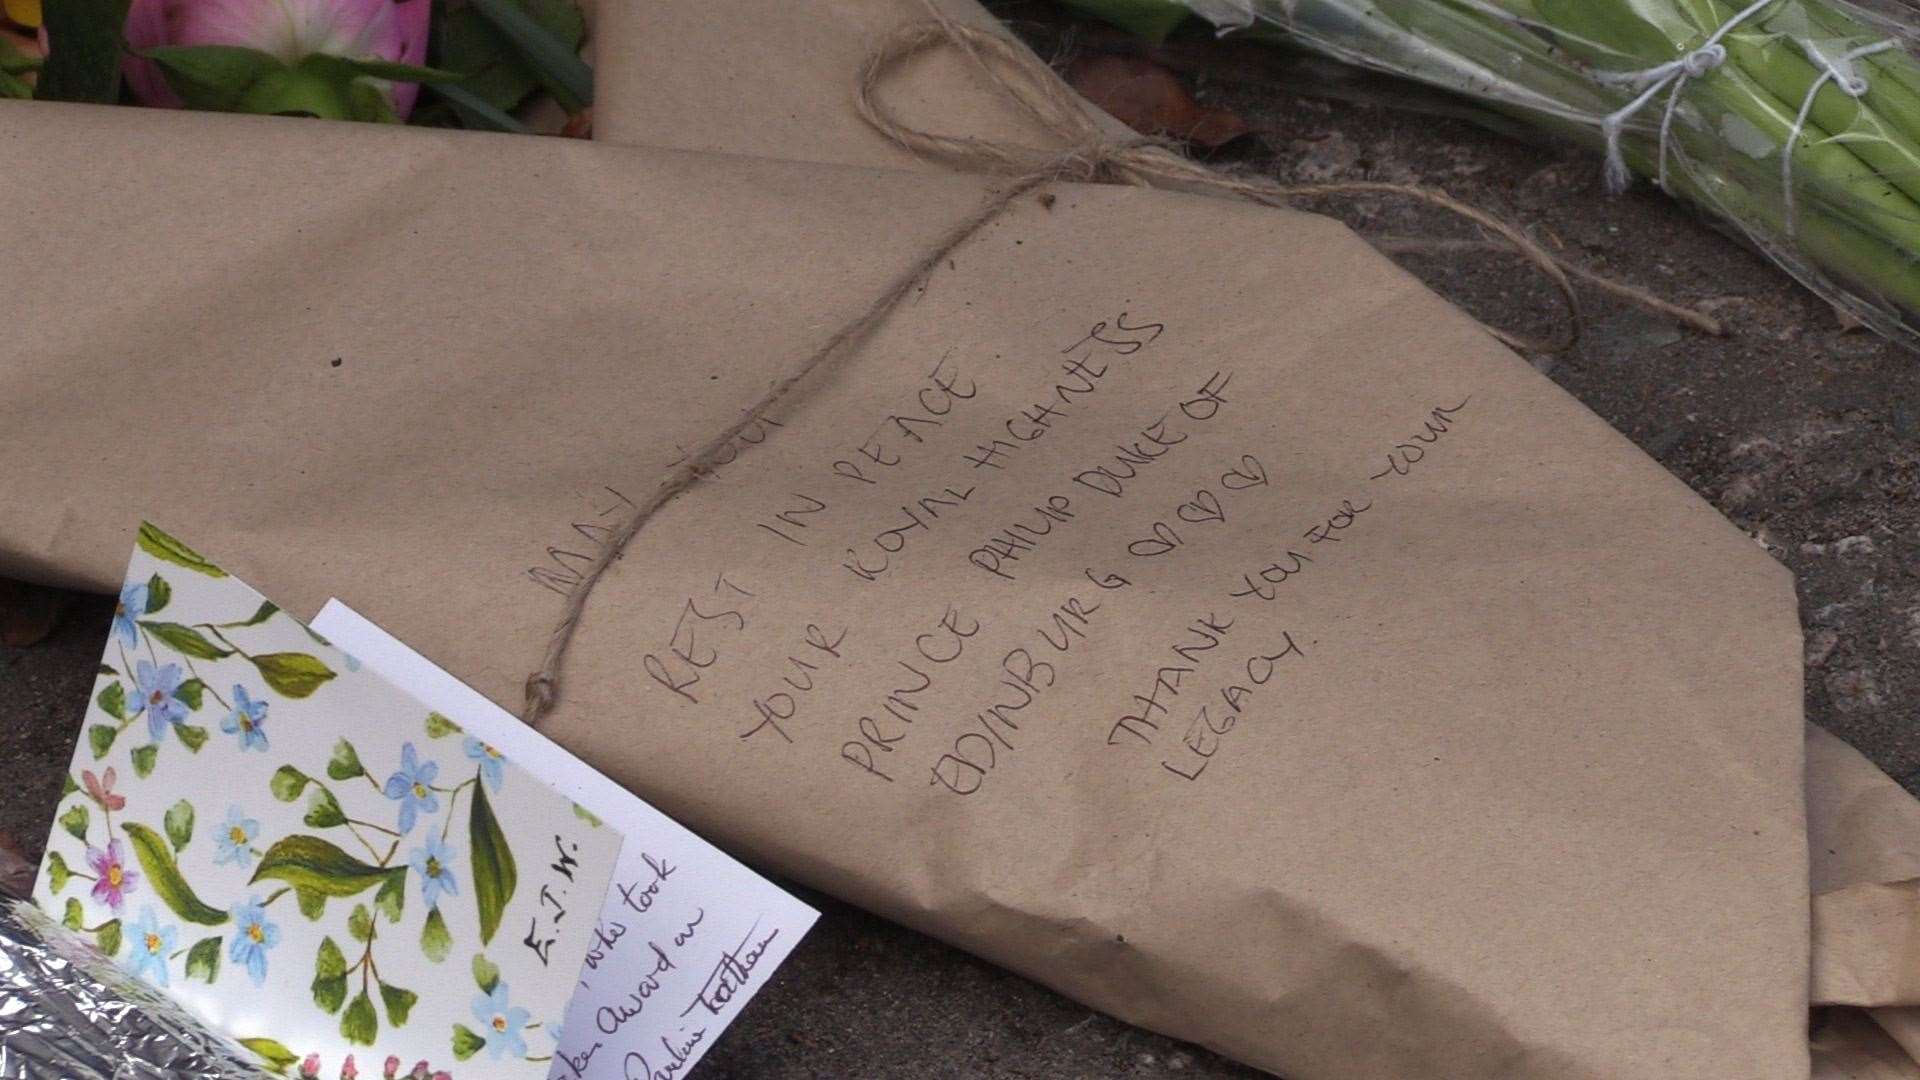 MAY YOU
REST IN PEACE
YOUR ROYAL HIGHNESS
PRINCE PHILIP DUKE OF
EDINBURG ♡ ♡ ♡
THANK YOU FOR YOUR
LEGACY.
E.J.W.
, who took
Award in